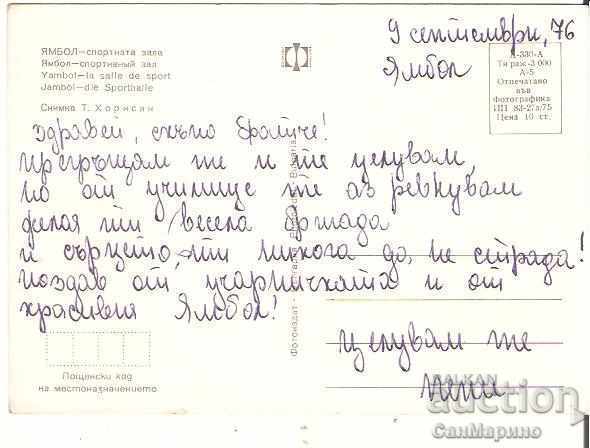 ЯМБОЛ—спортната зала
Ямбол—спортивный зал
Yambol—la salle de sport
Jambol—die Sporthalle
Снимка Т. Хорисян
9 септември, 76
Ямбол
Д-330-А
Тираж-3 000
А-5
Отпечатано
във
Фотографика
ПП 83-27а/75
Цена 10 ст.
Здравей, скъпо братче!
Прегръщам те и те целувам,
но от училище те аз ревнувам
желая ти весела бригада
и сърцето ти никога да не страда!
поздав от учарничката и от
красивия Ямбол!
целувам те
Пени
Пощенски код
на местоназначението
BALKAN
auction
СанМарино